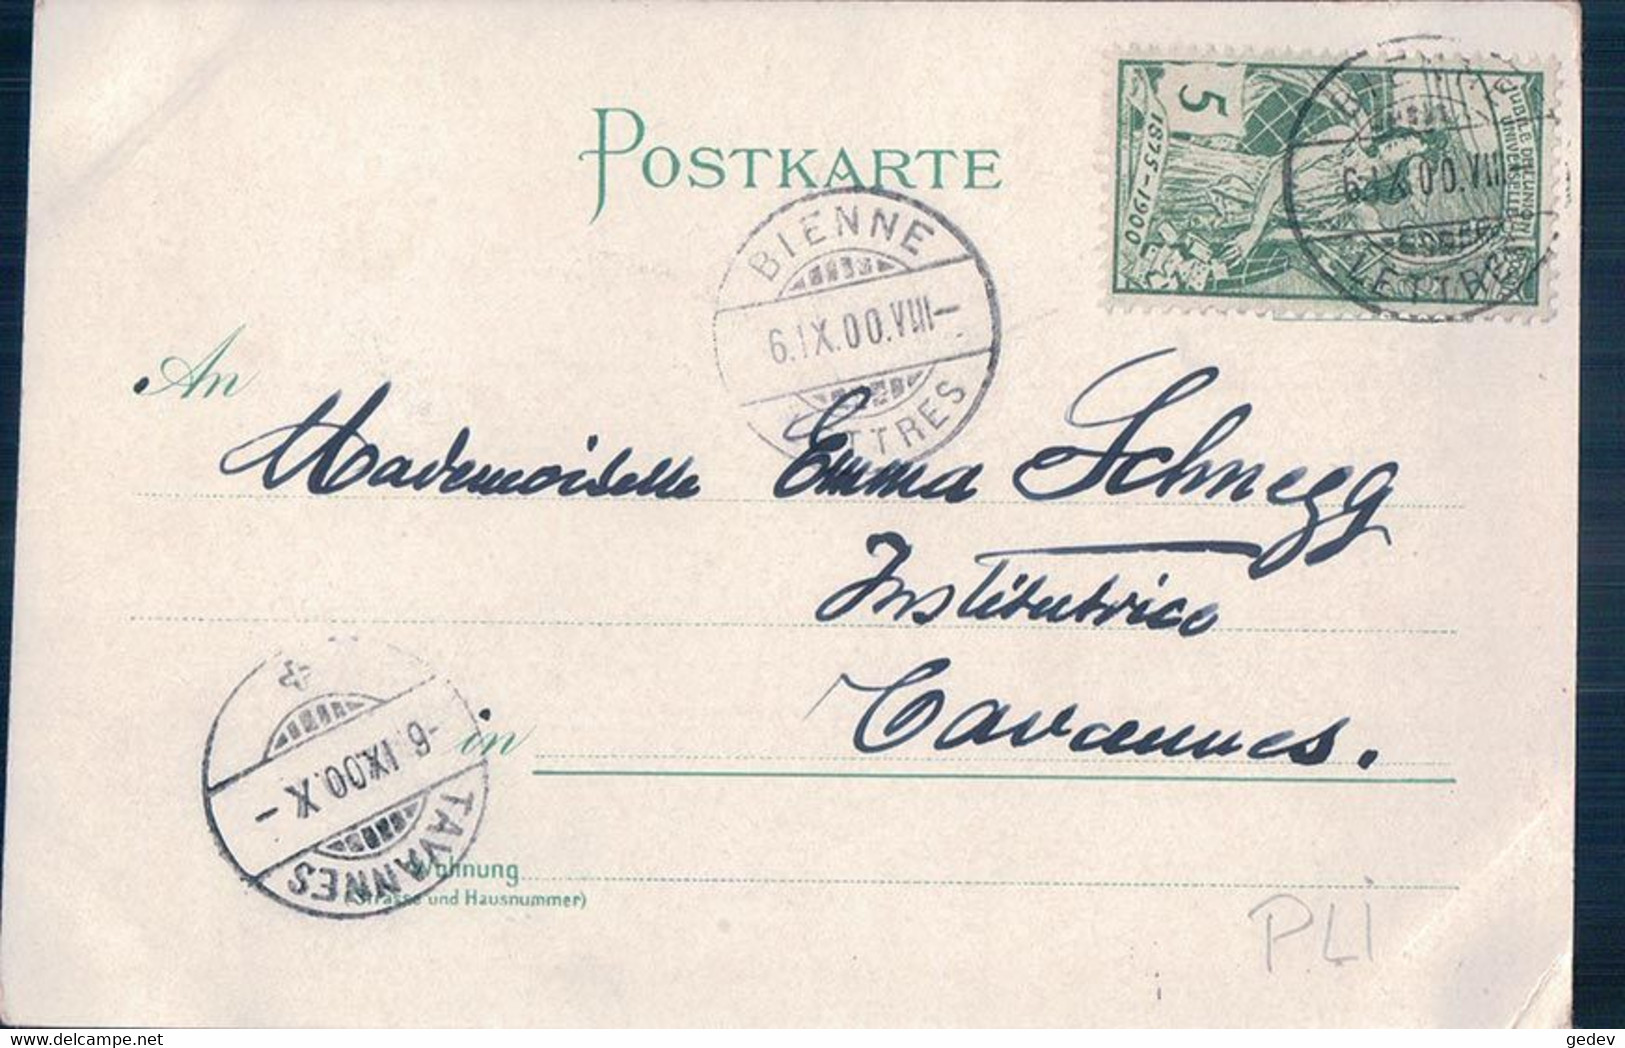 POSTKARTE
5
1875-1900
JUBILÉ DE L'UNION
UNIVERSELLE
BIENNE
6.IX.00.VIII
LETTRES
BIENNE
6.IX.00.VIII–
LETTRES
An
Mademoiselle Emma Schnegg
Institutrice
in
Tavannes.
-6.IX.00.X–
TAVANNES
Wohnung
(Strasse und Hausnummer)
PLI
gedev